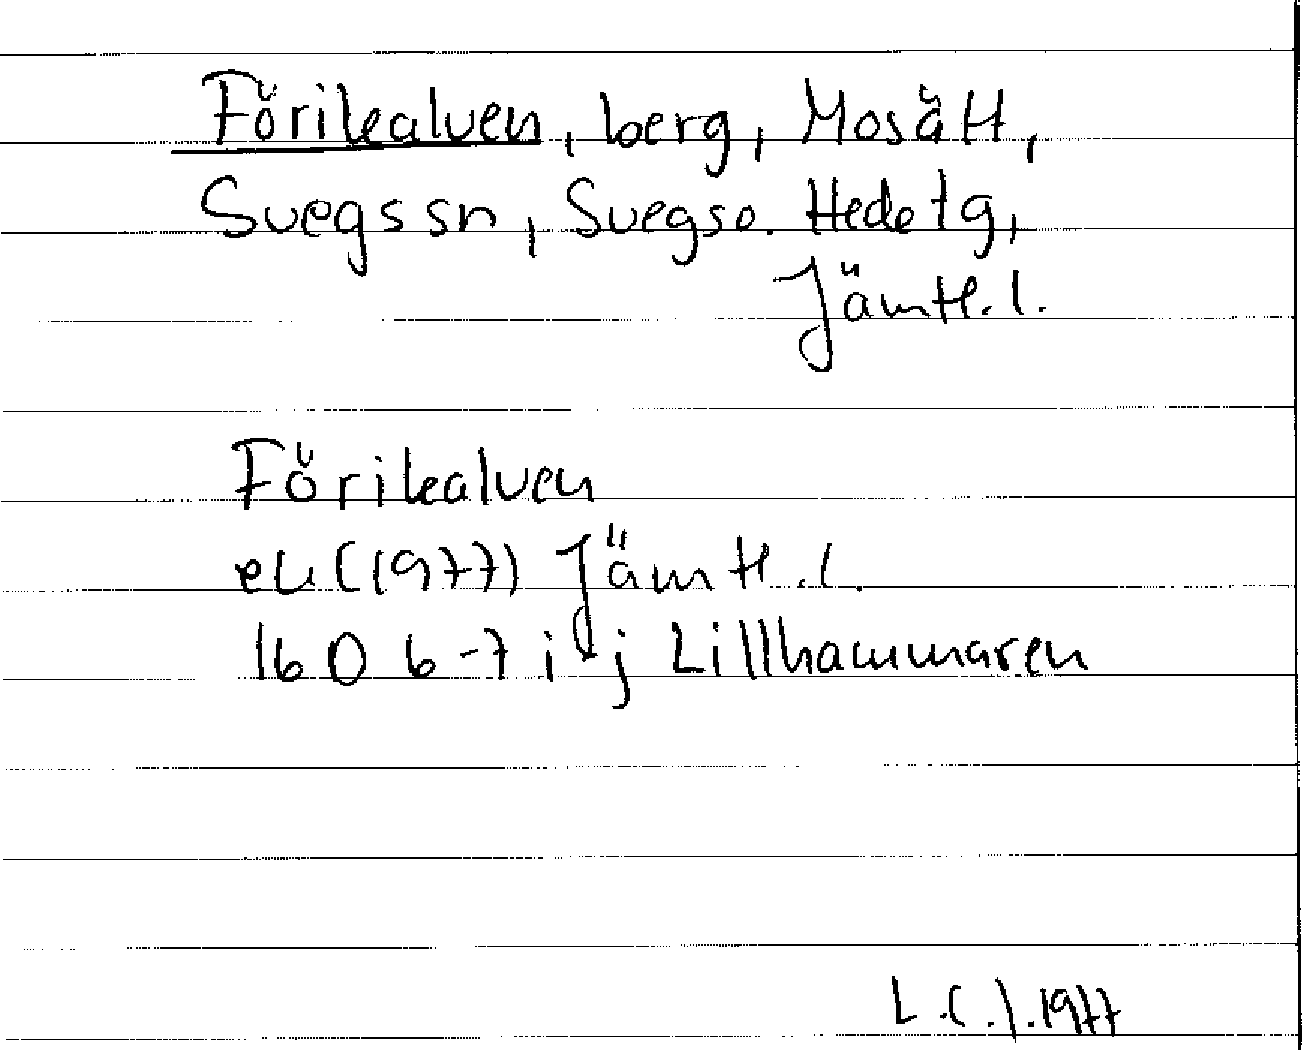 Förikalven, berg, Mosätt,
Svegs sn, Svegs o. Hede tg,
Jämtl. l.
Förikalven
ek (1977) Jämtl. l.
16 D 6-7 i, j Lillhammaren
L.C.J. 1977